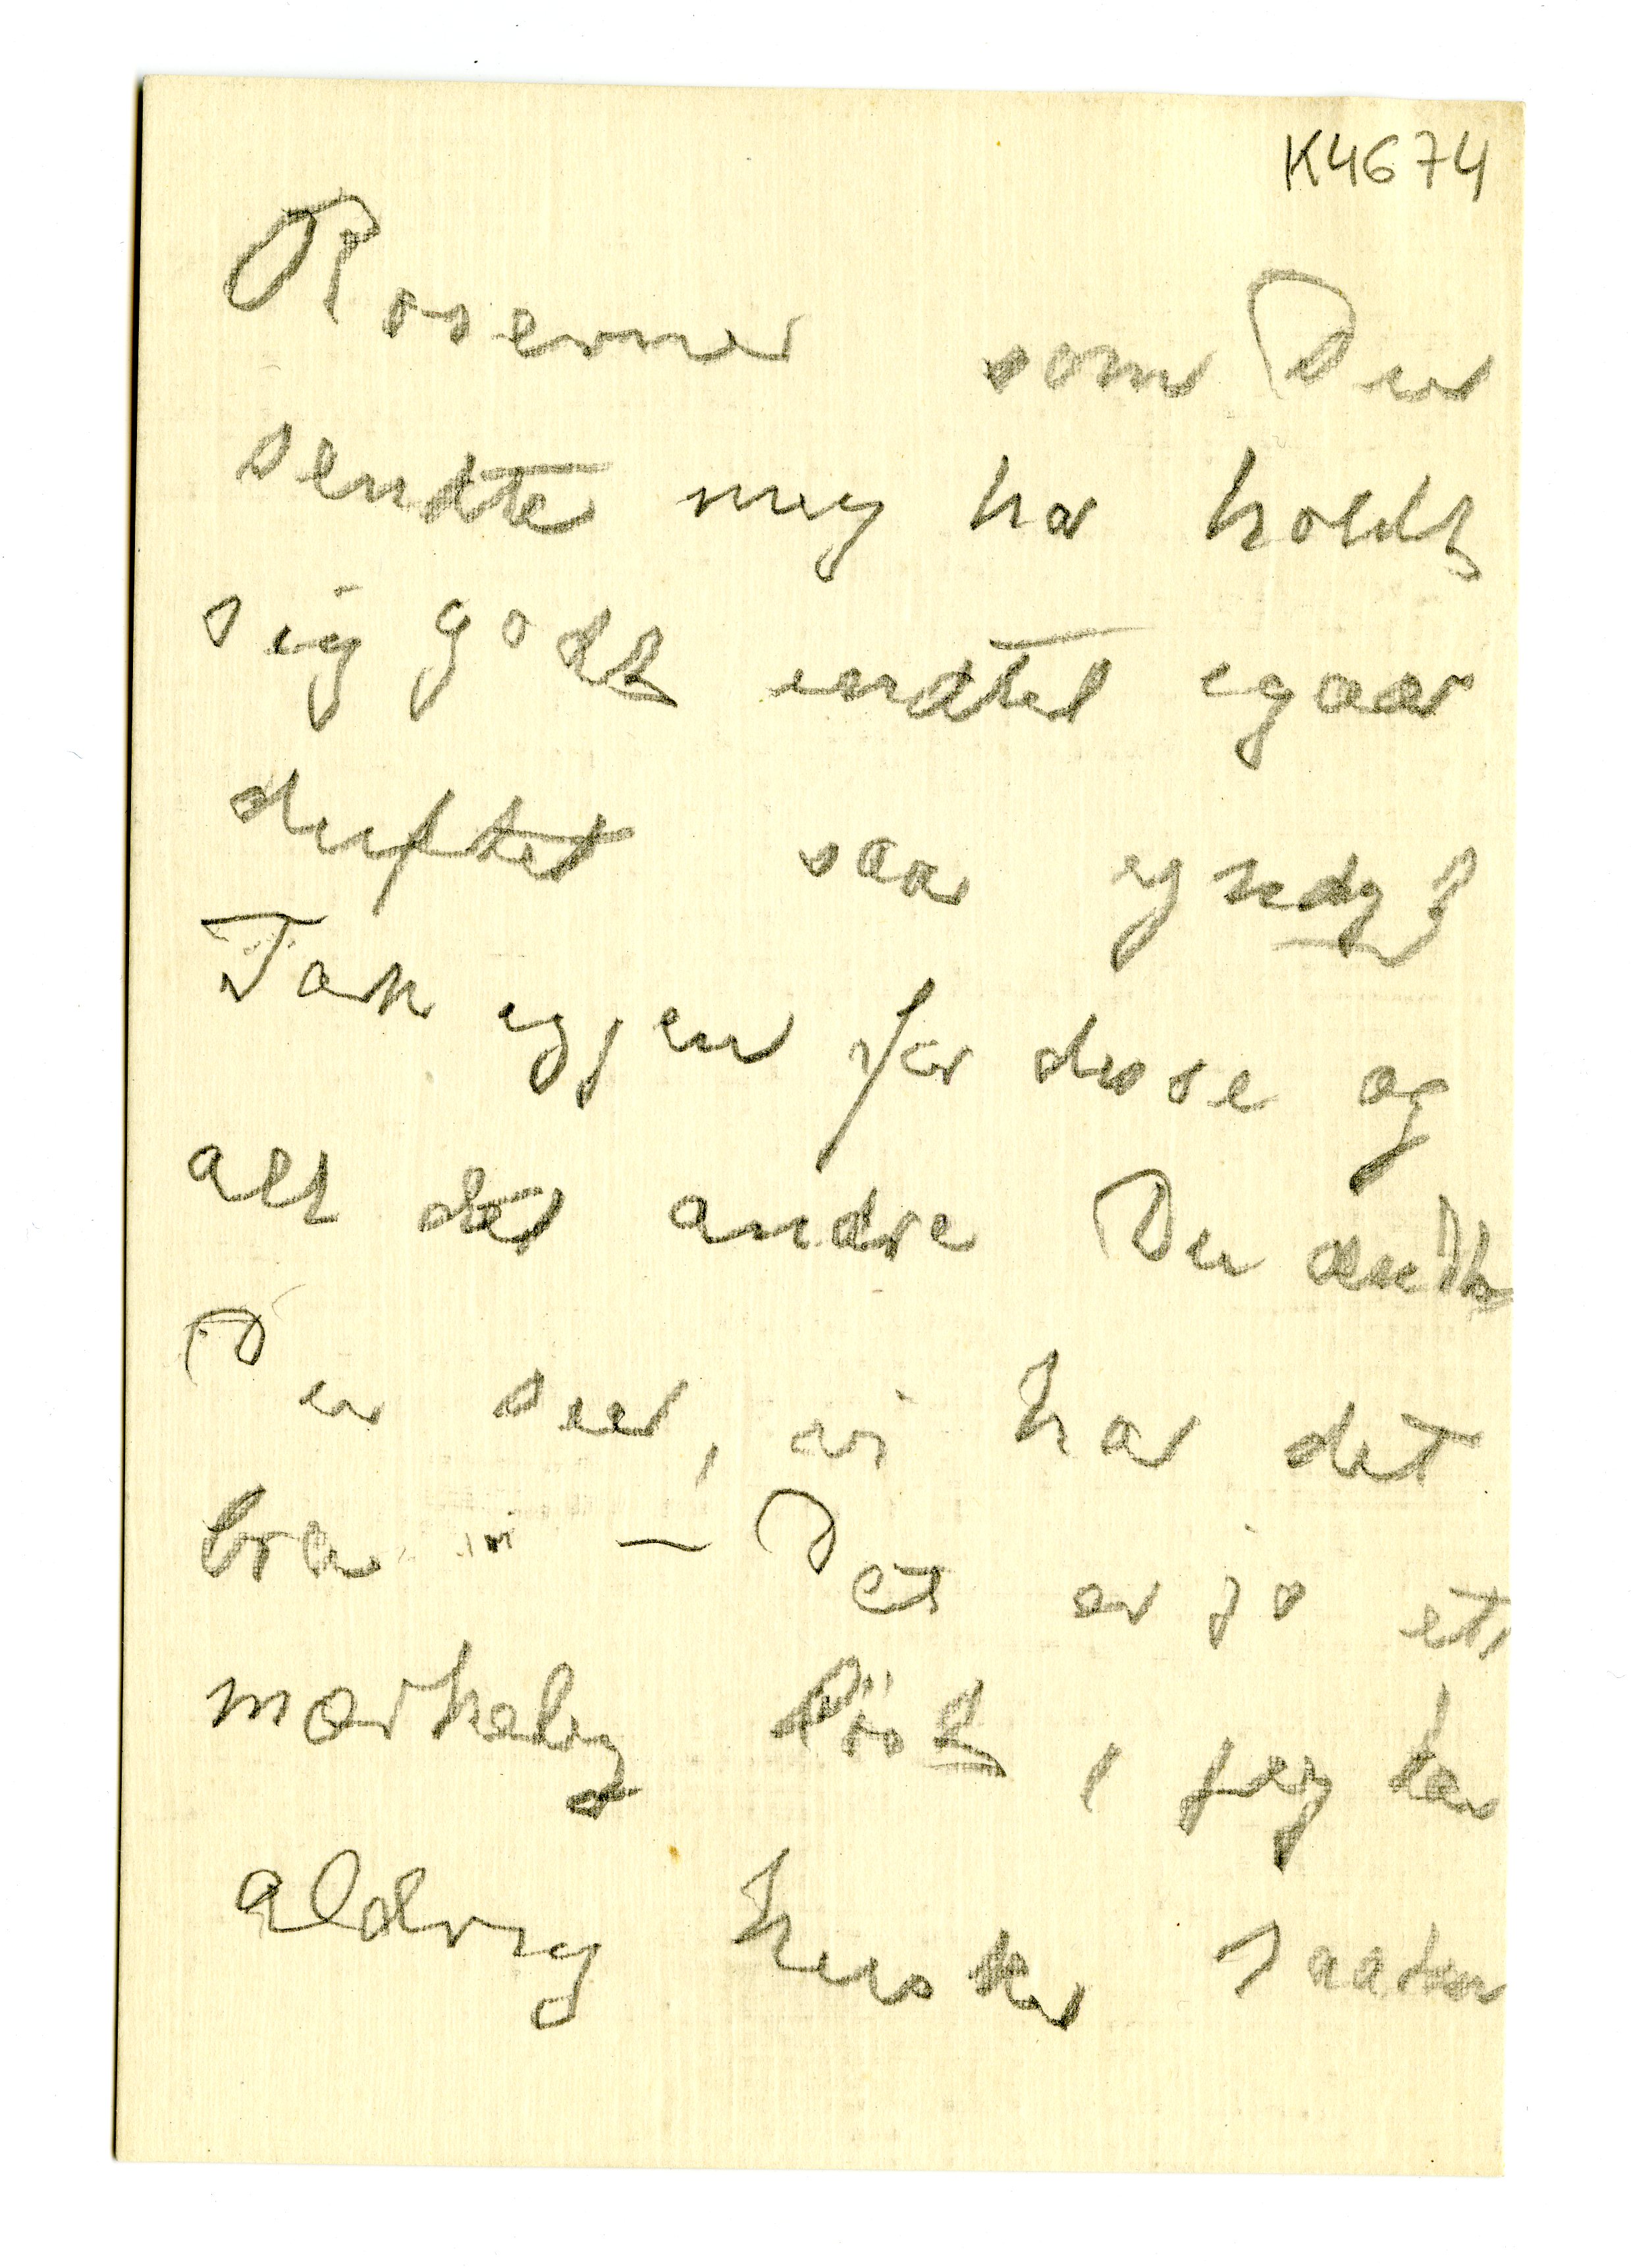 K4674
Roserner som Du
sendte mig har holdt
sig godt indtil igaar
duftet saa yndig
Tak igjen for disse og
alt det andre Du sendte
Du ser, vi har det
bra – Det er jo et
mærkelig Född, jeg har
aldrig husket saadan